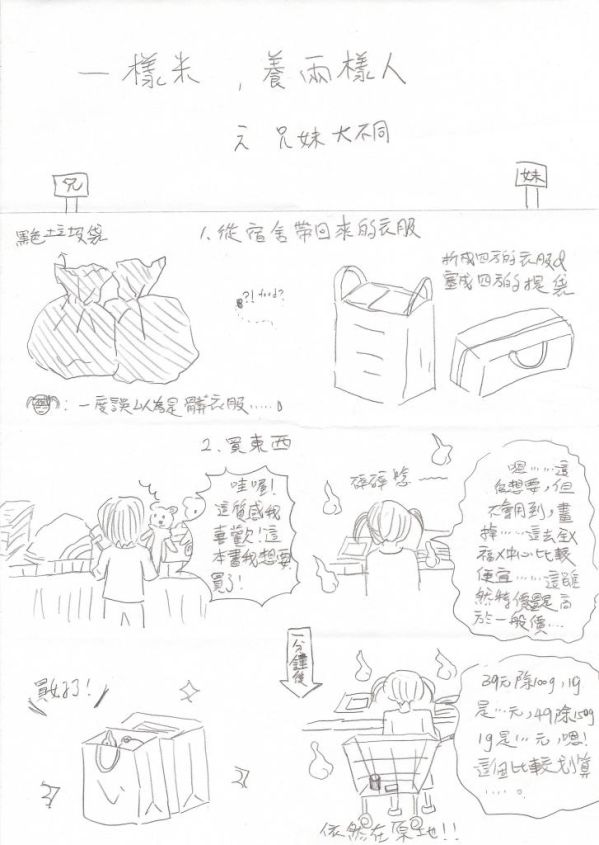 一樣米，養兩樣人
之 兄妹大不同
兄
妹
1、從宿舍帶回來的衣服
黑色垃圾袋
折成四方的衣服&
塞成四方的提袋
：一度誤以為是髒衣服……。
2、買東西
哇喔！
這質感我
喜歡！這
本書我想要
買了！
碎碎唸～
嗯……這
個想要，但
不會用到，畫
掉……這去全
福X中心比較
便宜……這雖
然特價還是高
於一般價…
買好了！
一分鐘後
39元除100g，1g
是…元，49除150g
1g是…元，嗯！
這個比較划算
……。
依然在原地！！